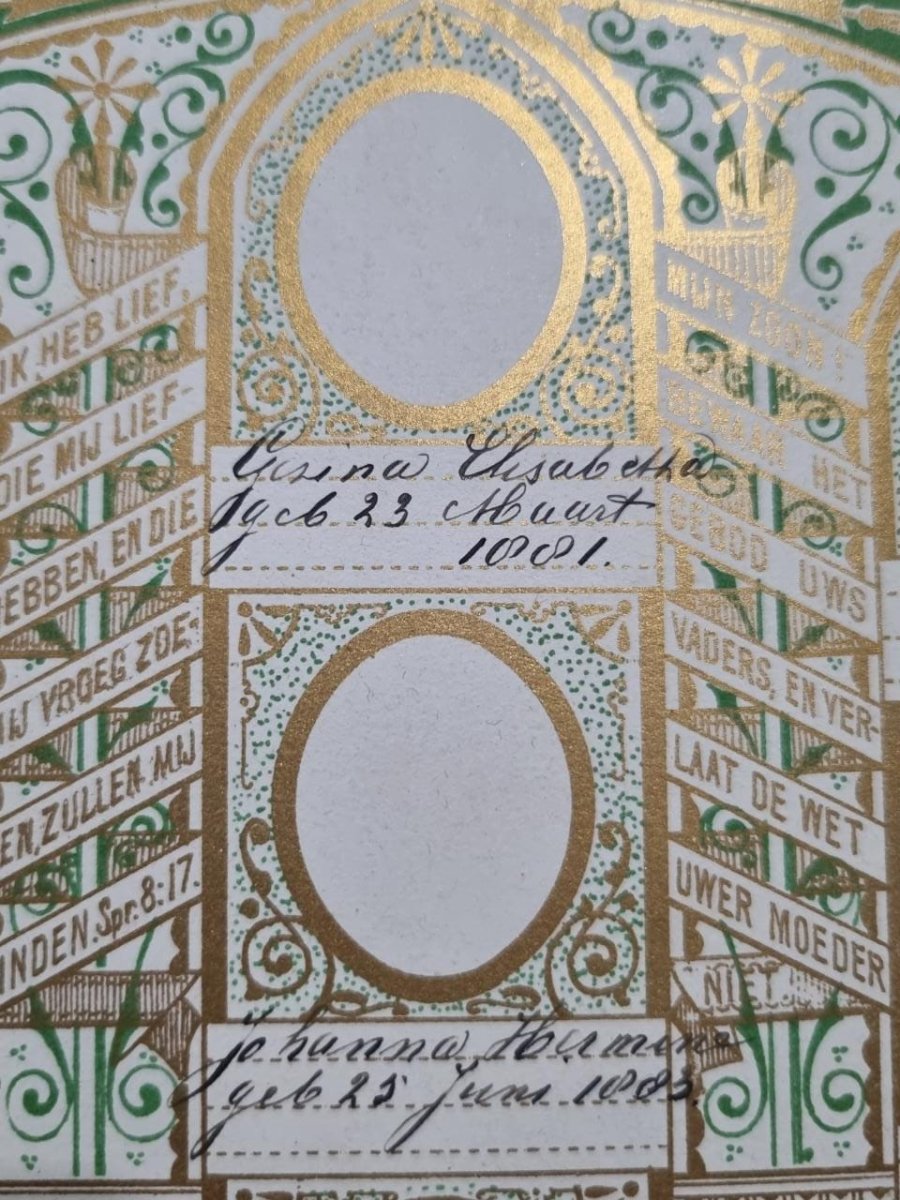 IK HEB LIEF,
DIE MIJ LIEF-
EBBEN, EN DIE
IJ VROEG ZOE-
EN, ZULLEN MIJ
INDEN. Spr. 8:17.
Gesina Elisabetha
geb 23 Maart
1881.
Johanna Hermina
geb 25 Juni 1883.
MIJN ZOON!
BEWAAR HET
GEBOD UWS
VADERS, EN VER-
LAAT DE WET
UWER MOEDER
NIET